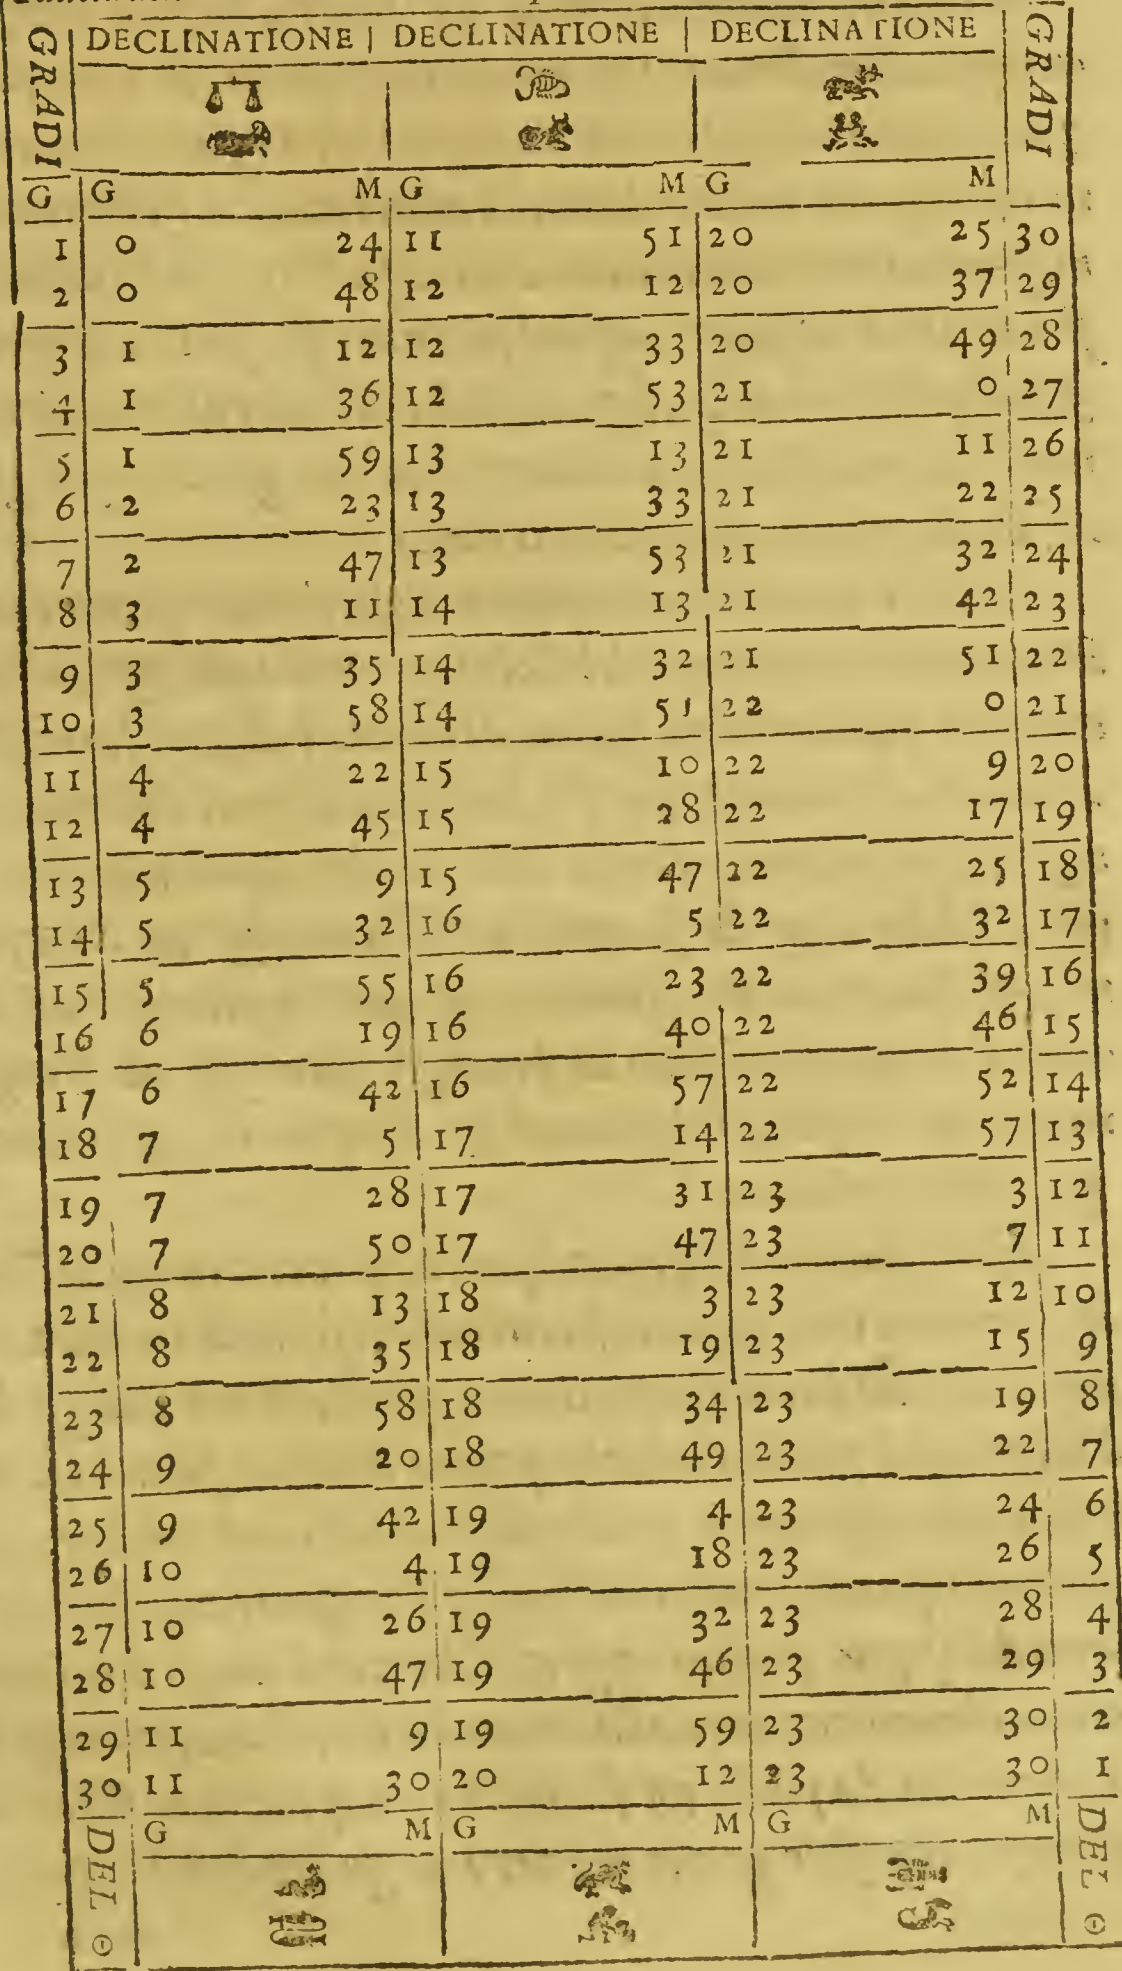 GRADI | DECLINATIONE | DECLINATIONE | DECLINATIONE | GRADI
G | G M | G M | G M
1 | 0 24 | 11 51 | 20 25 | 30
2 | 0 48 | 12 12 | 20 37 | 29
3 | 1 12 | 12 33 | 20 49 | 28
4 | 1 36 | 12 53 | 21 0 | 27
5 | 1 59 | 13 13 | 21 11 | 26
6 | 2 23 | 13 33 | 21 22 | 25
7 | 2 47 | 13 53 | 21 32 | 24
8 | 3 11 | 14 13 | 21 42 | 23
9 | 3 35 | 14 32 | 21 51 | 22
10 | 3 58 | 14 51 | 22 0 | 21
11 | 4 22 | 15 10 | 22 9 | 20
12 | 4 45 | 15 28 | 22 17 | 19
13 | 5 9 | 15 47 | 22 25 | 18
14 | 5 32 | 16 5 | 22 32 | 17
15 | 5 55 | 16 23 | 22 39 | 16
16 | 6 19 | 16 40 | 22 46 | 15
17 | 6 42 | 16 57 | 22 52 | 14
18 | 7 5 | 17 14 | 22 57 | 13
19 | 7 28 | 17 31 | 23 3 | 12
20 | 7 50 | 17 47 | 23 7 | 11
21 | 8 13 | 18 3 | 23 12 | 10
22 | 8 35 | 18 19 | 23 15 | 9
23 | 8 58 | 18 34 | 23 19 | 8
24 | 9 20 | 18 49 | 23 22 | 7
25 | 9 42 | 19 4 | 23 24 | 6
26 | 10 4 | 19 18 | 23 26 | 5
27 | 10 26 | 19 32 | 23 28 | 4
28 | 10 47 | 19 46 | 23 29 | 3
29 | 11 9 | 19 59 | 23 30 | 2
30 | 11 30 | 20 12 | 23 30 | 1
DEL ☉ | G M | G M | G M | DEL ☉